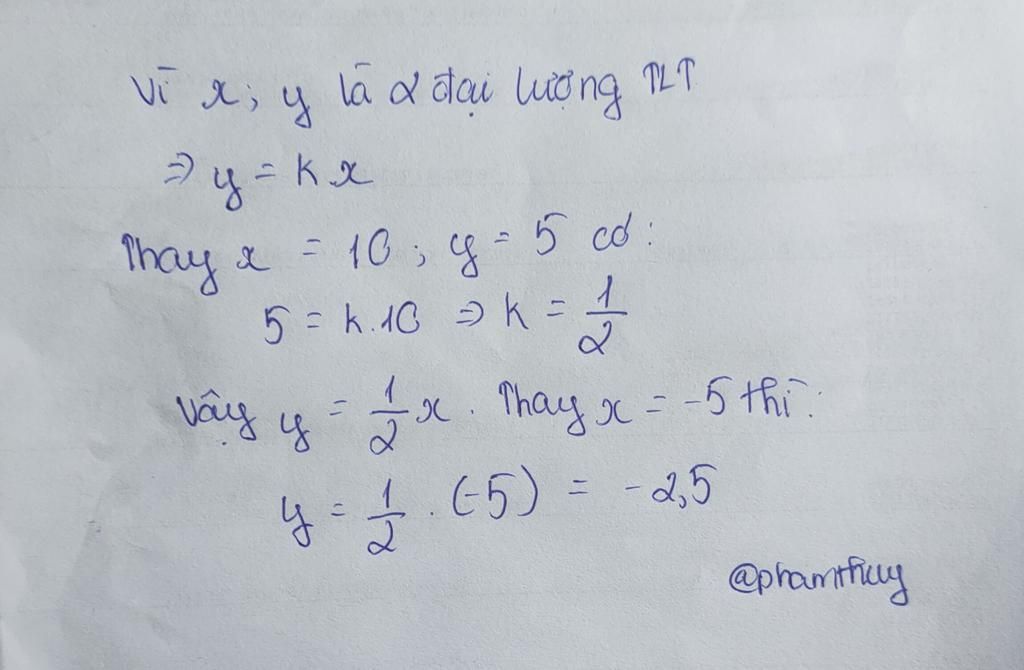 Vì x; y là 2 đại lượng TLT
⇒ y = kx
Thay x = 10; y = 5 có:
5 = k.10 ⇒ k = 1/2
Vậy y = 1/2 x. Thay x = -5 thì:
y = 1/2 . (-5) = -2,5
@phamthuy